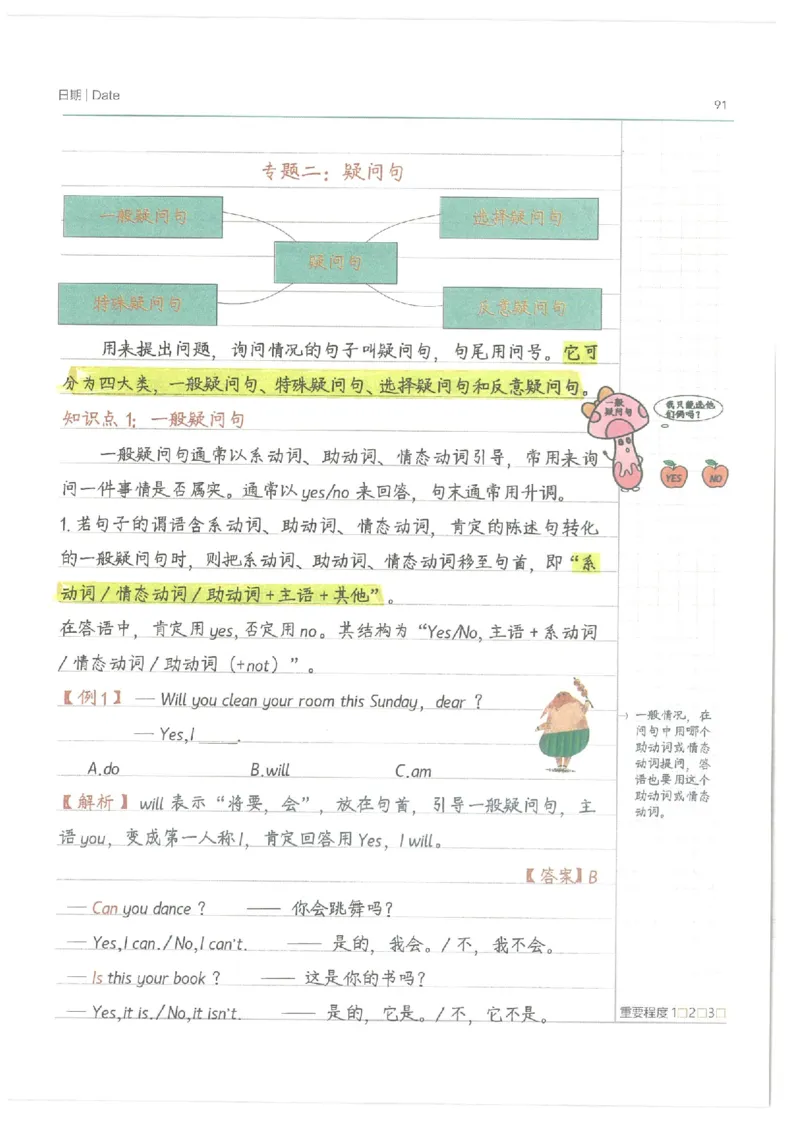 日期 | Date
91
专题二：疑问句
一般疑问句
选择疑问句
疑问句
特殊疑问句
反意疑问句
用来提出问题，询问情况的句子叫疑问句，句尾用问号。它可
分为四大类，一般疑问句、特殊疑问句、选择疑问句和反意疑问句。
一般
疑问句
我只能选他
们俩吗？
YES
NO
知识点 1：一般疑问句
一般疑问句通常以系动词、助动词、情态动词引导，常用来询
问一件事情是否属实。通常以 yes/no 来回答，句末通常用升调。
1. 若句子的谓语含系动词、助动词、情态动词，肯定的陈述句转化
的一般疑问句时，则把系动词、助动词、情态动词移至句首，即“系
动词 / 情态动词 / 助动词 + 主语 + 其他”。
在答语中，肯定用 yes,否定用 no。其结构为“Yes/No, 主语 + 系动词
/ 情态动词 / 助动词（+not）”。
【例1】 — Will you clean your room this Sunday，dear ？
— Yes,I _____.
A.do B.will C.am
一般情况，在
问句中用哪个
助动词或情态
动词提问，答
语也要用这个
助动词或情态
动词。
【解析】will 表示“将要，会”，放在句首，引导一般疑问句，主
语 you，变成第一人称 I，肯定回答用 Yes，I will。
【答案】B
— Can you dance ？ —— 你会跳舞吗？
— Yes,I can./No,I can't. —— 是的，我会。/ 不，我不会。
— Is this your book ？ —— 这是你的书吗？
— Yes,it is./No,it isn't. —— 是的，它是。/ 不，它不是。
重要程度 1□2□3□